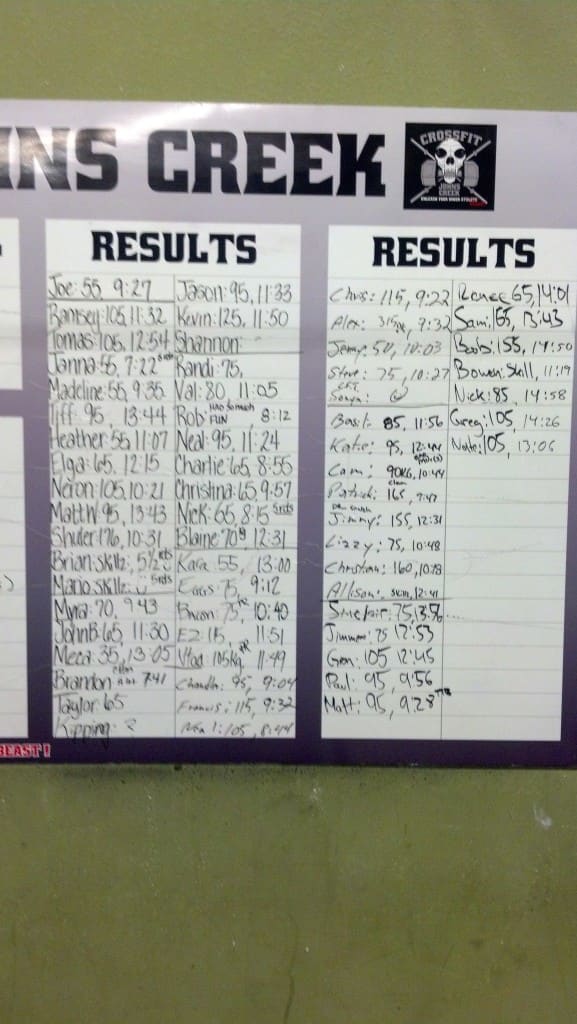 NS CREEK
CROSSFIT
JOHNS
CREEK
UNLEASH YOUR INNER ATHLETE
RESULTS
Joe: 55, 9:27
Ramsey: 105, 11:32
Tomas: 105, 12:54
Janna: 55, 7:22
Madeline: 55, 9:35
Tiff: 95, 13:44
Heather: 55, 11:07
Elga: 65, 12:15
Neron: 105, 10:21
Matt W: 95, 13:43
Shuler 126, 10:31
Brian: skillz, 5 1/2 rds
Mario skillz: 5rds
Myra: 70, 9:43
John B: 65, 11:30
Meca: 35, 13:05
Brandon 7:41
Taylor 65
Kipping: ?
Jason: 95, 11:33
Kevin: 125, 11:50
Shannon:
Randi: 75,
Val: 80, 11:05
Rob: HAD SO MUCH FUN, 8:12
Neal: 95, 11:24
Charlie: 65, 8:55
Christina: 65, 9:57
Nick: 65, 8:15 5rds
Blaine 70#, 12:31
Kara: 55, 13:00
75, 9:12
75, 10:40
EZ 115, 11:51
Vlad 105kg, 11:49
Chandler: 95, 9:04
Francis: 115, 9:32
105, 8:44
RESULTS
Chris: 115, 9:22
Alex: 9:32
Jenny: 50, 10:03
Steve: 75, 10:27
Sonya:
Basil: 85, 11:56
Katie: 95, 12:44
Cam: 90KG, 10:44
Patrick: 165, 9:47
Jimmy: 155, 12:31
Lizzy: 75, 10:48
Christian: 160, 10:28
Allison: 12:41
Sinclair: 75, 13:56
Jimmee: 75 12:53
Gen: 105 12:45
Paul: 95, 9:56
Matt: 95, 9:28
Renee 65, 14:01
Sam: 165, 13:43
Bob: 155, 14:50
Bowen: Skill, 11:19
Nick: 85, 14:58
Greg: 105, 14:26
Nate: 105, 13:06
BEAST!